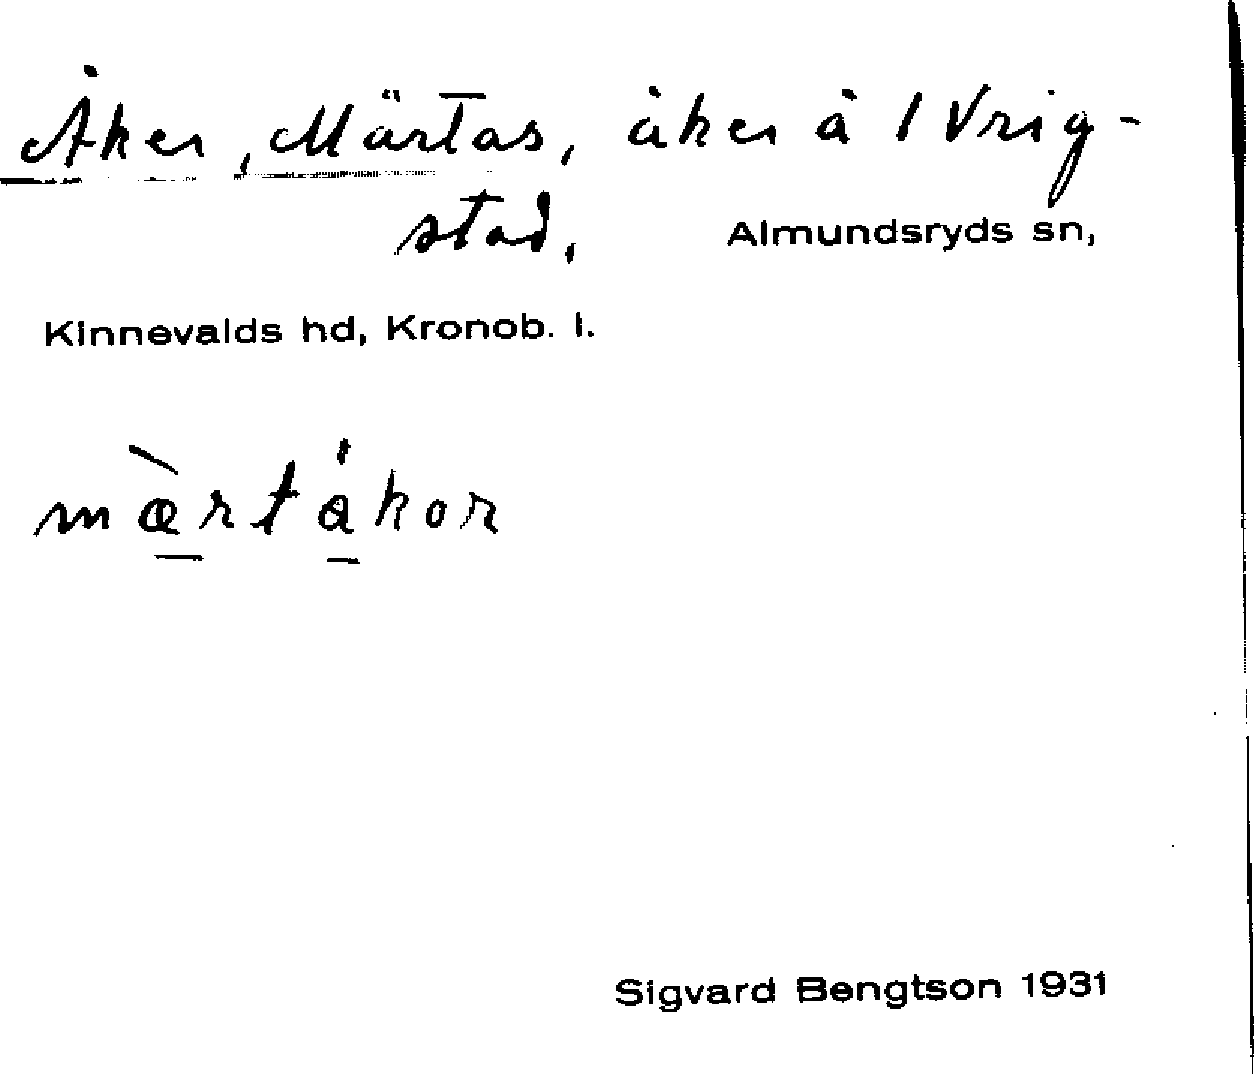 Åker, Märtas, åker å 1 Vrig-
stad, Almundsryds sn,
Kinnevalds hd, Kronob. l.
mæ̀rtåkor
Sigvard Bengtson 1931